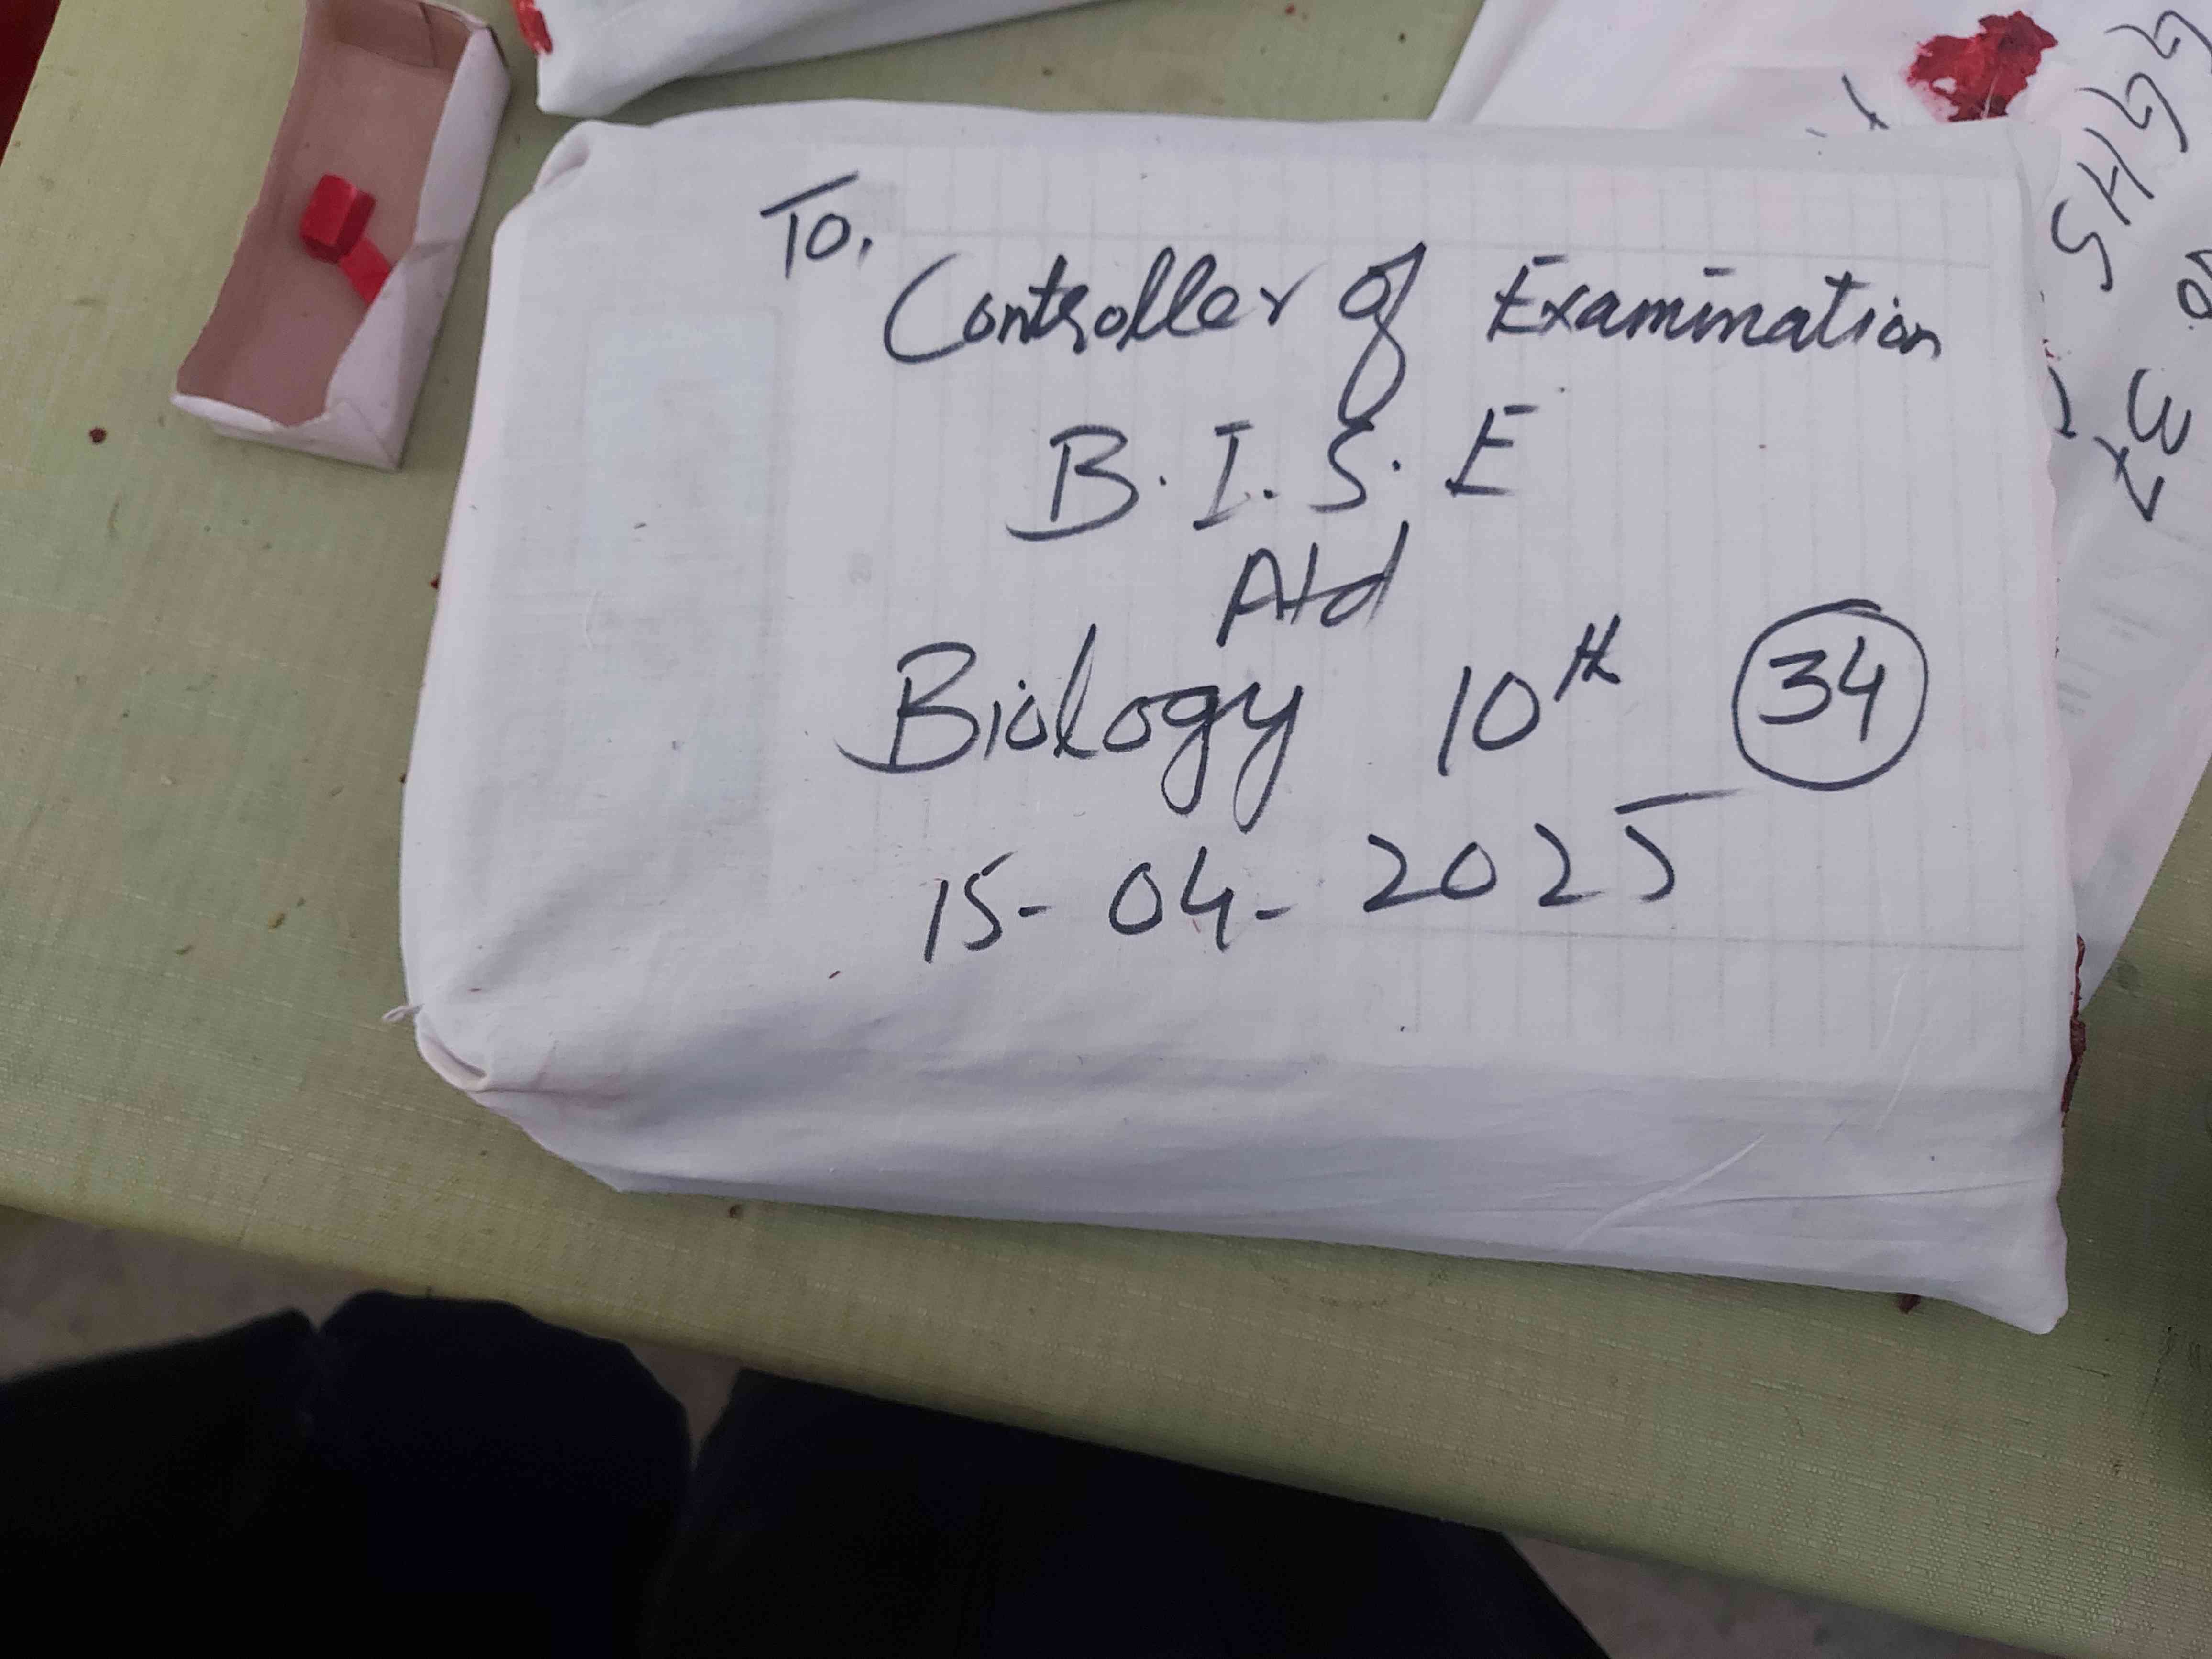 To,
Controller of Examination
B.I.S.E
Atd
Biology 10th 34
15-04-2025
GGHS
37